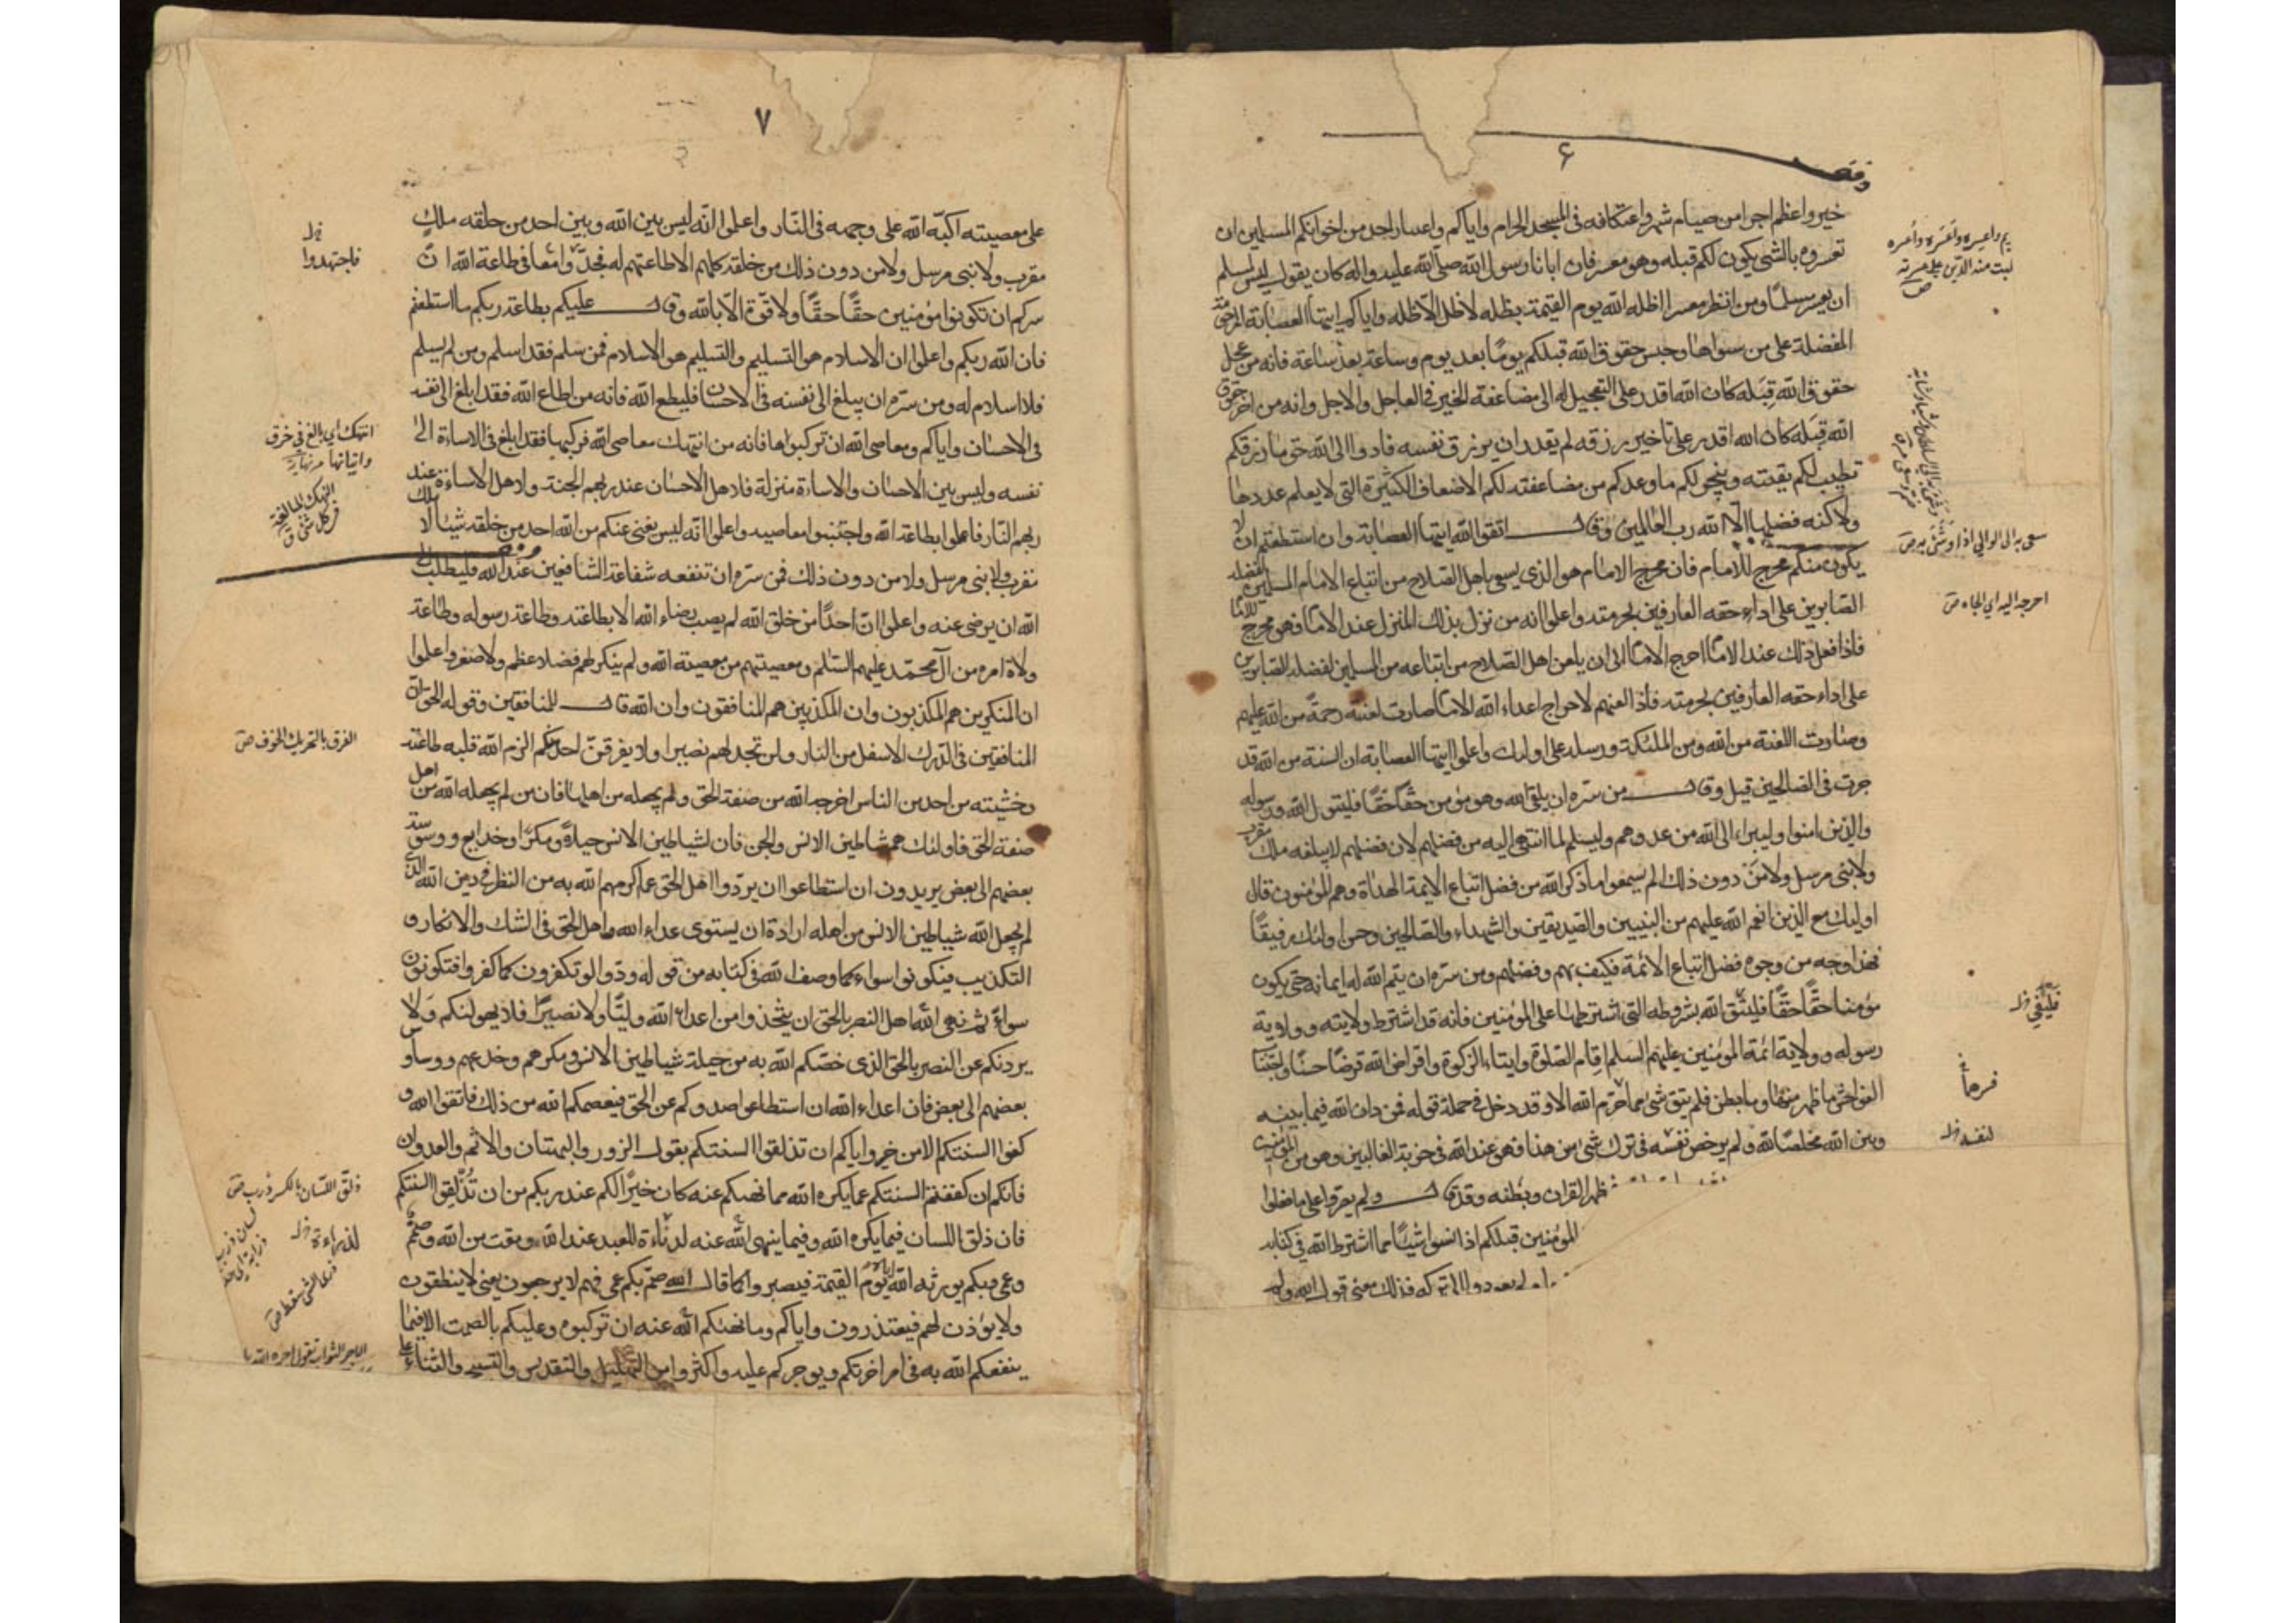 ٦
خير واعظم اجرا من صيام شهر واعتكافه في المسجد الحرام واياكم واعسار احد من اخوانكم المسلمين ان
تعسروه بالشئ يكون لكم قبله وهو معسر فان ابانا رسول الله صلى الله عليه واله كان يقول ليس لمسلم
ان يعسر مسلما ومن انظر معسرا اظله الله يوم القيمة بظله لا ظل الا ظله واياكم ايتها العصابة المرحومة
المفضلة على من سواها وحبس حقوق الله قبلكم يوما بعد يوم وساعة بعد ساعة فانه من عجل
حقوق الله قبله كان الله اقدر على التعجيل له الى مضاعفة الخير في العاجل والاجل وانه من اخر حقوق
الله قبله كان الله اقدر على تاخير رزقه لم يقدر ان يرزق نفسه فادوا الى الله حق ما رزقكم
يطيب لكم بقيته وينجز لكم ما وعدكم من مضاعفته لكم الاضعاف الكثيرة التي لا يعلم عددها
ولا كنه فضلها الا الله رب العالمين وقال اتقوا الله ايتها العصابة وان استطعتم ان لا
يكون منكم محرج للامام فان محرج الامام هو الذي يسعى باهل الصلاح من اتباع الامام المسلمين لفضله
الصابرين على اداء حقه العارفين بحرمته واعلموا انه من نزل بذلك المنزل عند الامام فهو محرج للامام
فاذا فعل ذلك عند الامام احرج الامام الى ان يلعن اهل الصلاح من اتباعه من المسلمين لفضله الصابرين
على اداء حقه العارفين بحرمته فاذا لعنهم لاحراج اعداء الله الامام صارت لعنته رحمة من الله عليهم
وصارت اللعنة من الله ومن الملئكة ورسله على اولئك واعلموا ايتها العصابة ان السنة من الله قد
جرت في الصالحين قبل وقال من سره ان يلقى الله وهو مؤمن حقا حقا فليتول الله ورسوله
والذين امنوا وليبراء الى الله من عدوهم وليسلم لما انتهى اليه من فضلهم لان فضلهم لا يبلغه ملك مقرب
ولا نبي مرسل ولا من دون ذلك الم يسمعوا ما ذكر الله من فضل اتباع الايمة الهداة وهم المؤمنون قال
اولئك مع الذين انعم الله عليهم من النبيين والصديقين والشهداء والصالحين وحسن اولئك رفيقا
فهذا وجه من وجوه فضل اتباع الائمة فكيف بهم وفضلهم ومن سره ان يتم الله له ايمانه حتى يكون
مؤمنا حقا حقا فليتق الله بشروطه التي اشترطها على المؤمنين فانه قد اشترط ولايته وولاية
رسوله وولاية ائمة المؤمنين عليهم السلم اقام الصلوة وايتاء الزكوة واقراض الله قرضا حسنا واجتناب
الفواحش ما ظهر منها وما بطن فلم يبق شئ مما حرم الله الا وقد دخل في جملة قوله فمن دان الله فيما بينه
وبين الله مخلصا لله ولم يرخص نفسه في ترك شئ من هذا فهو عند الله في حزبه الغالبين وهو من المؤمنين
ظهر القران وبطنه وقد قال ولم يصروا على ما فعلوا
المؤمنين قبلكم اذا نسوا شيئا مما اشترط الله في كتابه
الى تركه فذلك معنى قول الله ولم
سعى به الى الوالي اذا وشى به ص
احرجه اليه اي الجاه ص
لنفسه خ ل
٧
على معصيته اكبه الله على وجهه في النار واعلموا انه ليس بين الله وبين احد من خلقه ملك
مقرب ولا نبي مرسل ولا من دون ذلك من خلقه كلهم الا طاعتهم له فجدوا في طاعة الله ان
سركم ان تكونوا مؤمنين حقا حقا ولا قوة الا بالله وقال عليكم بطاعة ربكم ما استطعتم
فان الله ربكم واعلموا ان الاسلام هو التسليم والتسليم هو الاسلام فمن سلم فقد اسلم ومن لم يسلم
فلا اسلام له ومن سره ان يبلغ الى نفسه في الاحسان فليطع الله فانه من اطاع الله فقد ابلغ الى نفسه
في الاحسان واياكم ومعاصي الله ان تركبوها فانه من انتهك معاصي الله فركبها فقد ابلغ في الاساءة الى
نفسه وليس بين الاحسان والاساءة منزلة فلاهل الاحسان عند ربهم الجنة ولاهل الاساءة عند
ربهم النار فاعملوا بطاعة الله واجتنبوا معاصيه واعلموا انه ليس يغني عنكم من الله احد من خلقه شيئا لا ملك
مقرب ولا نبي مرسل ولا من دون ذلك فمن سره ان تنفعه شفاعة الشافعين عند الله فليطلب الى
الله ان يرضى عنه واعلموا ان احدا من خلق الله لم يصب رضاء الله الا بطاعته وطاعة رسوله وطاعة
ولاة امره من آل محمد عليهم السلم ومعصيتهم من معصية الله ولم ينكر لهم فضلا عظم ولا صغر واعلموا
ان المنكرين هم المكذبون وان المكذبين هم المنافقون وان الله قال للمنافقين وقوله الحق ان
المنافقين في الدرك الاسفل من النار ولن تجد لهم نصيرا ولا يفرقن احد منكم الزم الله قلبه طاعته
وخشيته من احد من الناس اخرجه الله من صفة الحق ولم يجعله من اهلها فان من لم يجعله الله من اهل
صفة الحق فاولئك هم شياطين الانس والجن فان لشياطين الانس حيلة ومكرا وخدايع ووسوسة
بعضهم الى بعض يريدون ان استطاعوا ان يردوا اهل الحق عما اكرمهم الله به من النظر في دين الله الذي
لم يجعل الله شياطين الانس من اهله ارادة ان يستوي عداء الله واهل الحق في الشك والانكار و
التكذيب فيكونوا سواء كما وصف الله في كتابه من قوله ودوا لو تكفرون كما كفروا فتكونون
سواء ثم نهى الله اهل النصر بالحق ان يتخذوا من اعداء الله وليا ولا نصيرا فلا يهولنكم ولا
يردنكم عن النصر بالحق الذي خصكم الله به من حيلة شياطين الانس ومكرهم وخدعهم ووساوس
بعضهم الى بعض فان اعداء الله ان استطاعوا صدوكم عن الحق فيعصمكم الله من ذلك فاتقوا الله و
كفوا السنتكم الا من خير واياكم ان تذلقوا السنتكم بقول الزور والبهتان والاثم والعدوان
فانكم ان كففتم السنتكم عما يكره الله مما نهيكم عنه كان خيرا لكم عند ربكم من ان تذلقوا السنتكم
فان ذلق اللسان فيما يكره الله وفيما ينهى الله عنه لدناءة للعبد عند الله ومقت من الله وصم
وعمي وبكم يورثه الله اياه يوم القيمة فيصيروا كما قال الله صم بكم عمي فهم لا يرجعون يعني لا ينطقون
ولا يؤذن لهم فيعتذرون واياكم وما نهيكم الله عنه ان تركبوه وعليكم بالصمت الا فيما
ينفعكم الله به في امر اخرتكم ويوجركم عليه واكثروا من التهليل والتقديس والتسبيح والثناء على
خ ل
فاجتهدوا
انتهك اي بالغ في خرق
الفرق بالتحريك الخوف ص